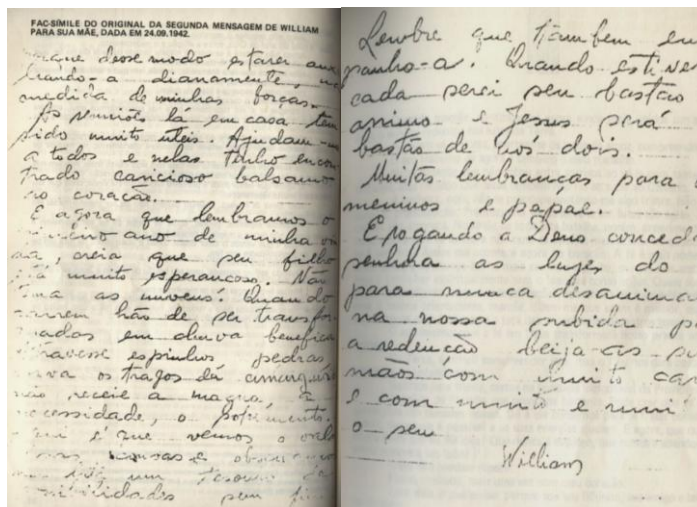 FAC-SÍMILE DO ORIGINAL DA SEGUNDA MENSAGEM DE WILLIAM
PARA SUA MÃE, DADA EM 24.09.1942.
desse modo estarei
diariamente, na
medida de minhas forças.
As reuniões lá em casa têm
sido muito uteis. Ajudam
a todos e nelas tenho encon
trado caricioso balsamo
ao coração.
E agora que lembramos o
ano de minha
creia que seu filho
muito esperançoso. Não
as nuvens! Quando
hão de ser transfor
madas em chuva benefica
espinhos pedras
os traços de amargura
não receie a magua, a
necessidade, o sofrimento.
é que vemos o
cousas e
um tesouro de
sem
Lembre que tambem
panho-a. Quando estiver
cada serei seu bastão
animo e Jesus será
bastão de nós dois.
Muitas lembranças para
meninos e papae.
E rogando a Deus conced
senhora as luzes do
para nunca desanima
na nossa subida p
a redenção beija-as su
mãos com muito car
e com muito e mui
o seu
William